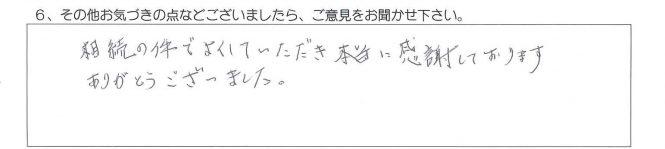 6、その他お気づきの点などございましたら、ご意見をお聞かせ下さい。
相続の件でよくしていただき本当に感謝しております
ありがとうございました。